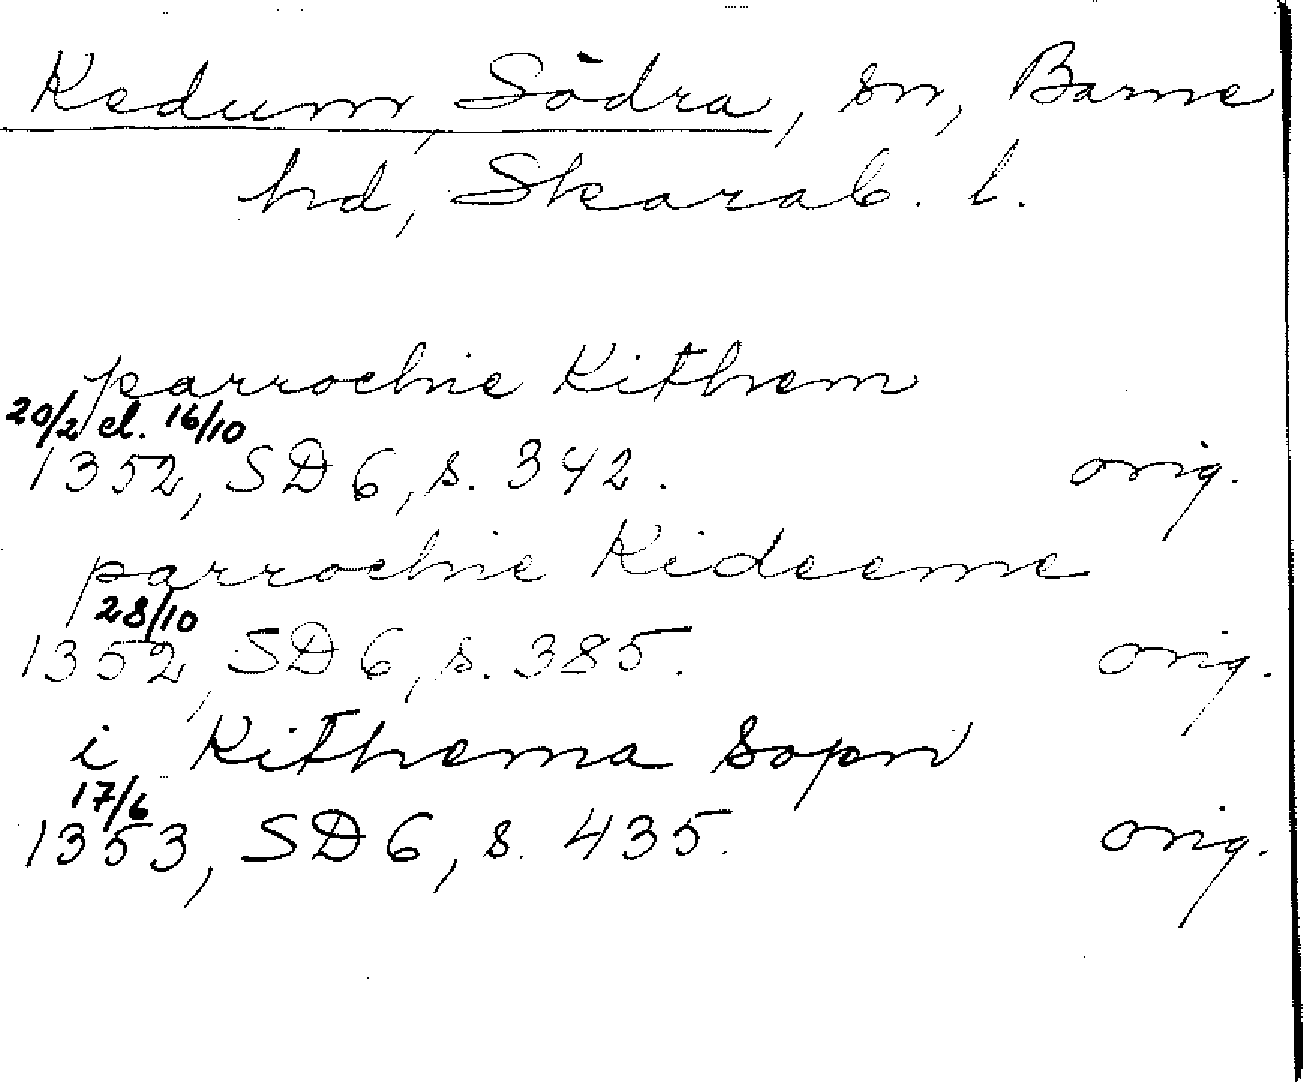 Kedum, Södra, sn, Barne
hd, Skarab. l.
parrochie Kithem
20/2 el. 16/10
1352, SD 6, s. 342. orig.
parrochie Kideeme
28/10
1352, SD 6, s. 385. orig.
i Kithema sopn
17/6
1353, SD 6, s. 435. orig.